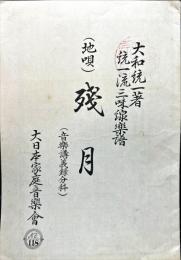 大和統一著
統一流三味線樂譜
(地唄)
殘月
(音樂講義録分科)
大日本家庭音樂會
118